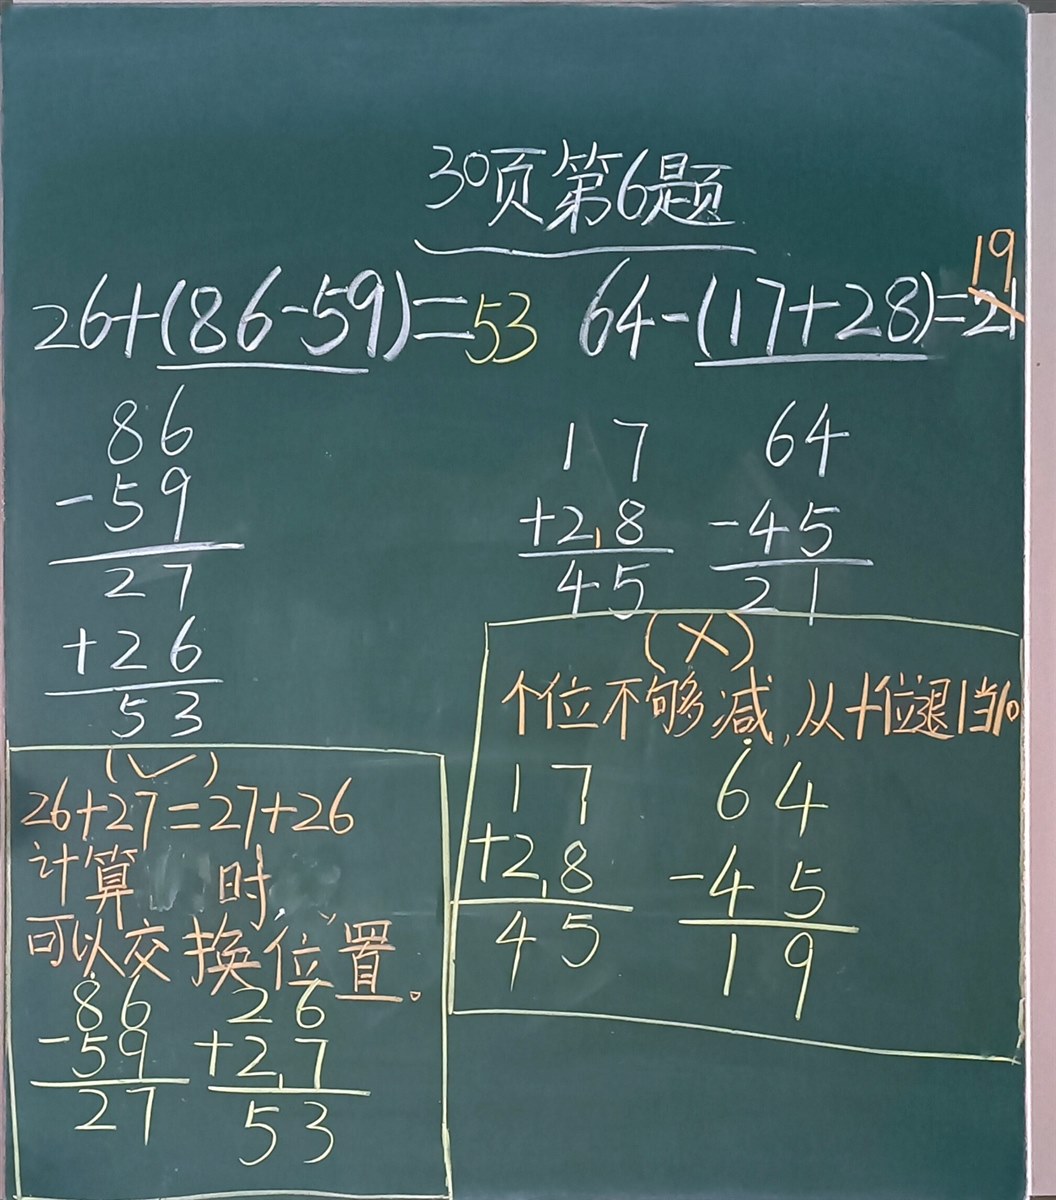 30页第6题
26+(86-59)=53
64-(17+28)=21
19
86
-59
27
+26
53
17
+28
45
64
-45
21
(✓)
26+27=27+26
计算 时,
可以交换位置。
86
-59
27
26
+27
53
(×)
个位不够减,从十位退1当10
17
+28
45
64
-45
19